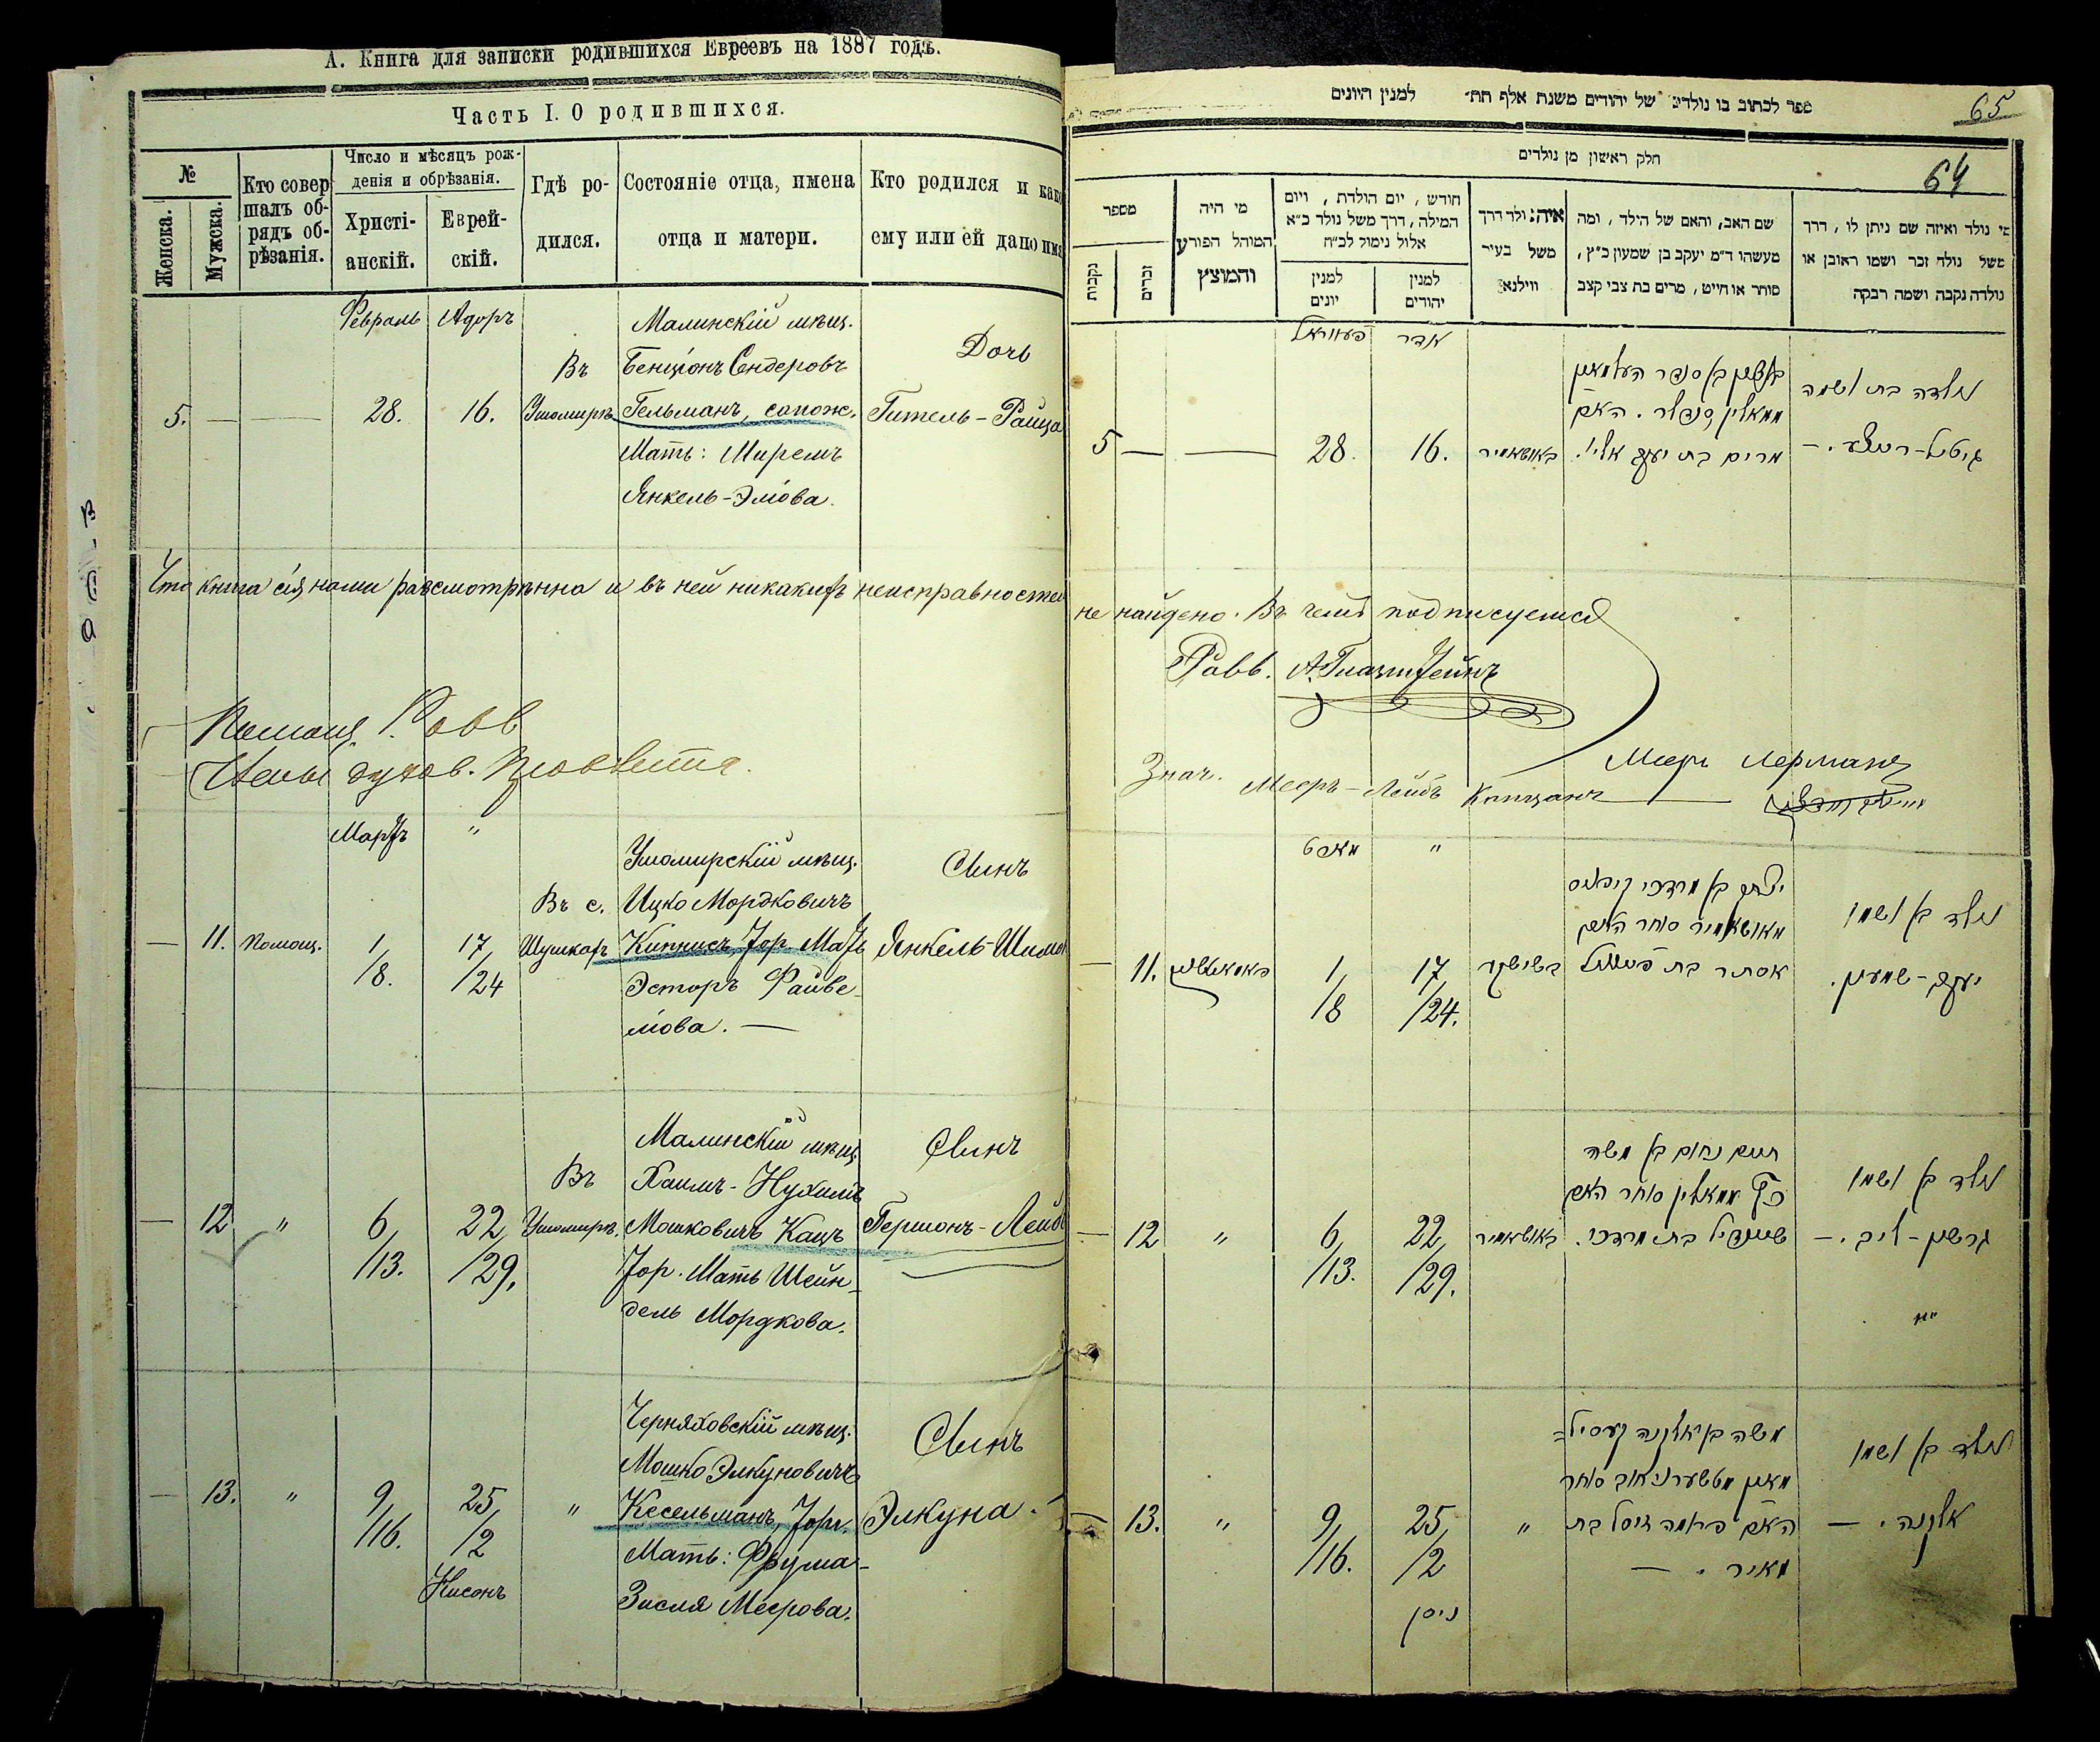 А. Книга для записки родившихся Евреевъ на 1887 годъ.
Часть I. О родившихся.
№
Женска.
Мужска.
Кто совер
шалъ об-
рядъ об-
рѣзанія.
Число и мѣсяцъ рож-
денія и обрѣзанія.
Христі-
анскій.
Еврей-
скій.
Гдѣ ро-
дился.
Состояніе отца, имена
отца и матери.
Кто родился и како
ему или ей дано имя
Февраль
Адоръ
5. — — 28. 16.
Въ
Ушомирѣ
Малинскій мѣщ.
Бенціонъ Сендеровъ
Гельманъ, сапож.
Мать: Миремъ
Янкель-Эліова.
Дочь
Гитель-Раиза
Что книга сія нами разсмотрѣнна и въ ней никакихъ неисправностей
Помощ. Равв
Члены духов. Правленія.
Мартъ "
— 11. Помощ. 1/18. 17/24
Въ с.
Шушкахъ
Ушомирскій мѣщ.
Ицко Мордковичъ
Кипнисъ, Тор. Мать
Эстеръ Файве-
лiова. —
Сынъ
Янкель-Шимон
— 12 " 6/13. 22/29.
Въ
Ушомирѣ.
Малинскій мѣщ.
Хаимъ-Нухимъ
Мошковичъ Кацъ
Тор. Мать Шейн-
дель Мордкова.
Сынъ
Гершонъ-Лейб
— 13. " 9/16. 25/2
Нисонъ
"
Черняховскій мѣщ.
Мошко Элкуновичъ
Кесельманъ, Торг.
Мать: Фрума-
Зисля Меерова.
Сынъ
Элкуна.
ספר לכתוב בו נולדים של יהודים משנת אלף תת למנין היונים
65
חלק ראשון מן נולדים
64
מספר
נקבות
זכרים
מי היה
המוהל הפורע
והמוצץ
חודש, יום הולדת, ויום
המילה, דרך משל נולד כ״א
אלול נימול לכ״ח
למנין
יונים
למנין
יהודים
איה נולד דרך
משל בעיר
ווילנא
שם האב, והאם של הילד, ומה
מעשהו ד״מ יעקב בן שמעון כ״ץ,
סוחר או חייט, מרים בת צבי קצב
מי נולד ואיזה שם ניתן לו, דרך
משל נולד זכר ושמו ראובן או
נולדה נקבה ושמה רבקה
פעווראל
אדר
5 — — 28. 16.
באושאמיר
בנציון בן סנדר העלמאן
ממאלין סנדלר. האם
מרים בת יעקב אלי'.
נולדה בת ושמה
גיטל-רייצע. —
не найдено. Въ чемъ подписуемся
Равв.
Знач. Мееръ-Лейбъ
Мееръ Лерманъ
מארט "
— 11. 1/18 17/24.
יצחק בן מרדכי קיפניס
מאושאמיר סוחר האם
אסתר בת פייוויל
נולד בן ושמו
יעקב-שמעון.
— 12 " 6/13. 22/29.
באושאמיר
חיים נחום בן משה
כץ ממאלין סוחר האם
שיינדיל בת מרדכי.
נולד בן ושמו
גרשון-ליב. —
— 13. " 9/16. 25/2
ניסן
"
משה בן אלקנה קעסיל=
מאן מטשערניאחוב סוחר
האם פרומה זיסל בת
מאיר. —
נולד בן ושמו
אלקנה. —